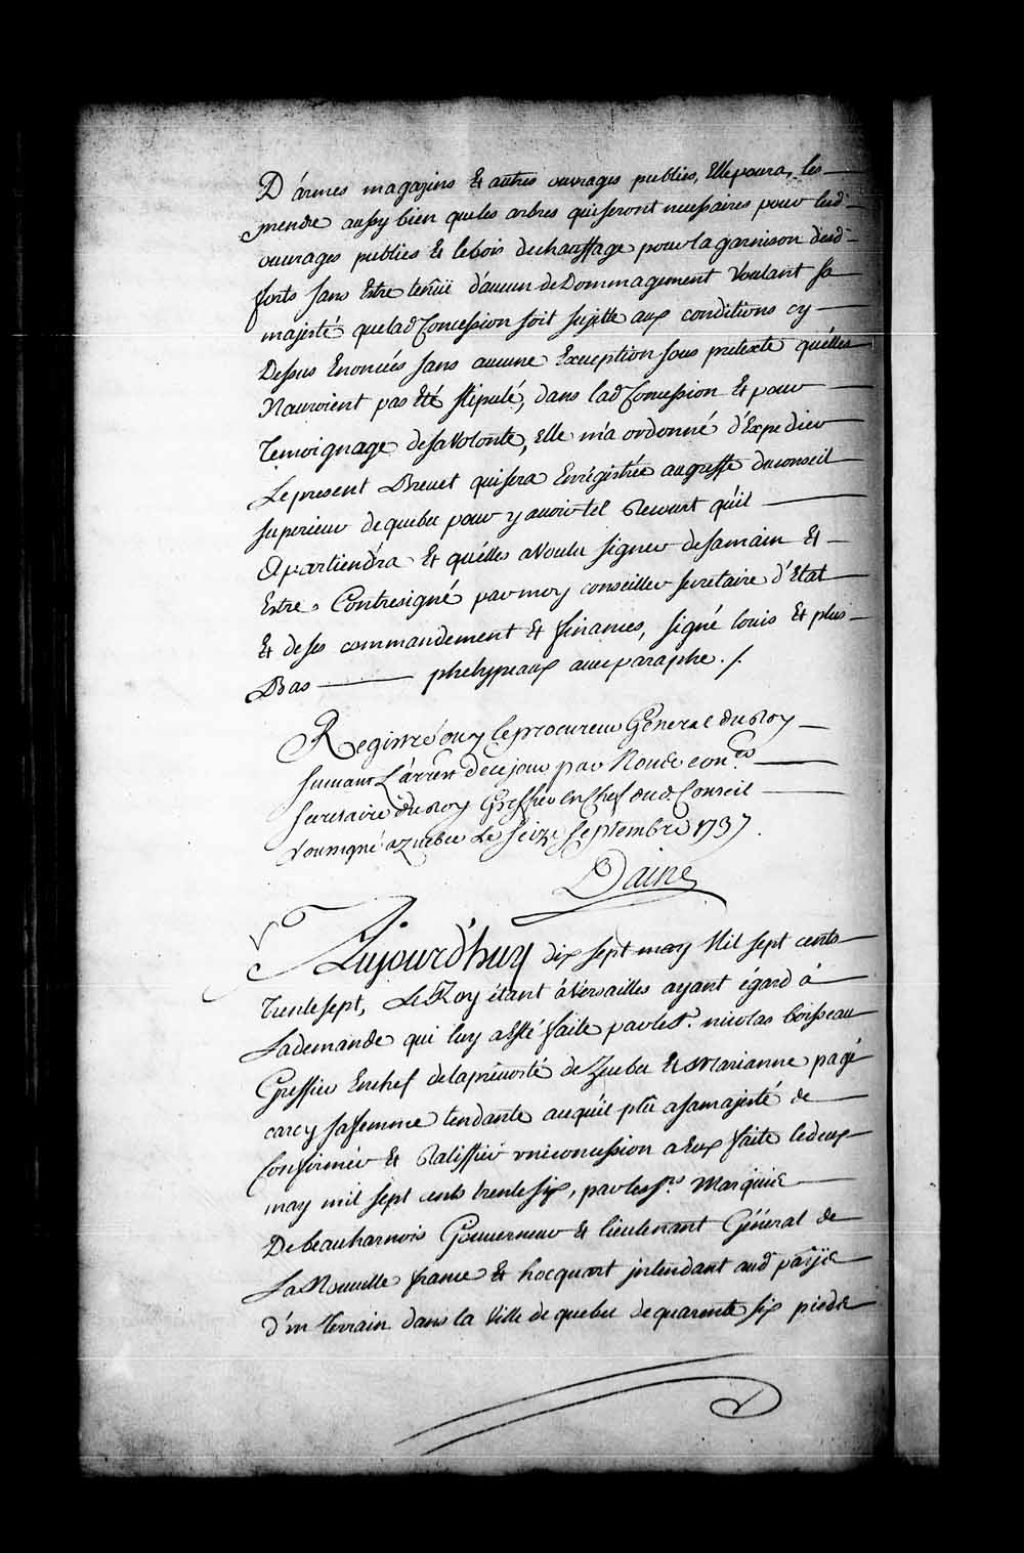 D'armes magazins Et autres ouvrages publics, Elle poura, les
prendre aussy bien que les arbres qui seront necessaires pour lesd.
ouvrages publics Et le bois de chauffage pour la garnison desd.
forts sans Estre tenüe d'aucun deDommagement Voulant sa
majesté que lad Concession soit sujette aux conditions cy
Dessus Enoncées sans aucune Exception sous pretexte quélles
Nauroient pas Eté stipulé, dans lad Concession Et pour
Temoignage de sa Volonté, Elle m'a ordonné d'Expedier
Le present Brevet qui sera Enrégistrée au greffe du conseil
superieur de quebec pour y avoir tel Recourt qu'il
Apartiendra Et quélles a Voulu signer de sa main Et
Estre Contresigné par moy conseiller secretaire d'Etat
Et de ses commandement Et finances, signé louis Et plus
Bas phelypeaux avec paraphe ./.
Registré ouy le procureur Géneral du Roy
suivant L'arrest de ce jour par Nous con.er
secretaire du Roy Greffier En Chef dud. Conseil
soussigné a quebec Le seize septembre 1737.
Daine
Aujourd'huy dix sept may Mil sept cents
Trente sept, Le Roy étant à Versailles ayant égard à
La demande qui luy a Esté faite par le S.r nicolas boisseau
Greffier Enchef de la prévosté de Quebec Et Marianne pagé
carcy sa femme tendante aceq'uil plu a sa majesté de
Confirmér Et Ratiffiér une concession a Eux faite le deux
may mil sept cents trente six, par les S.rs Marquis
De beauharnois Gouverneur Et lieutenant Général de
La Nouvelle france Et hocquart jntendant aud païjs
d'un terrain dans la Ville de quebec de quarente six pieds